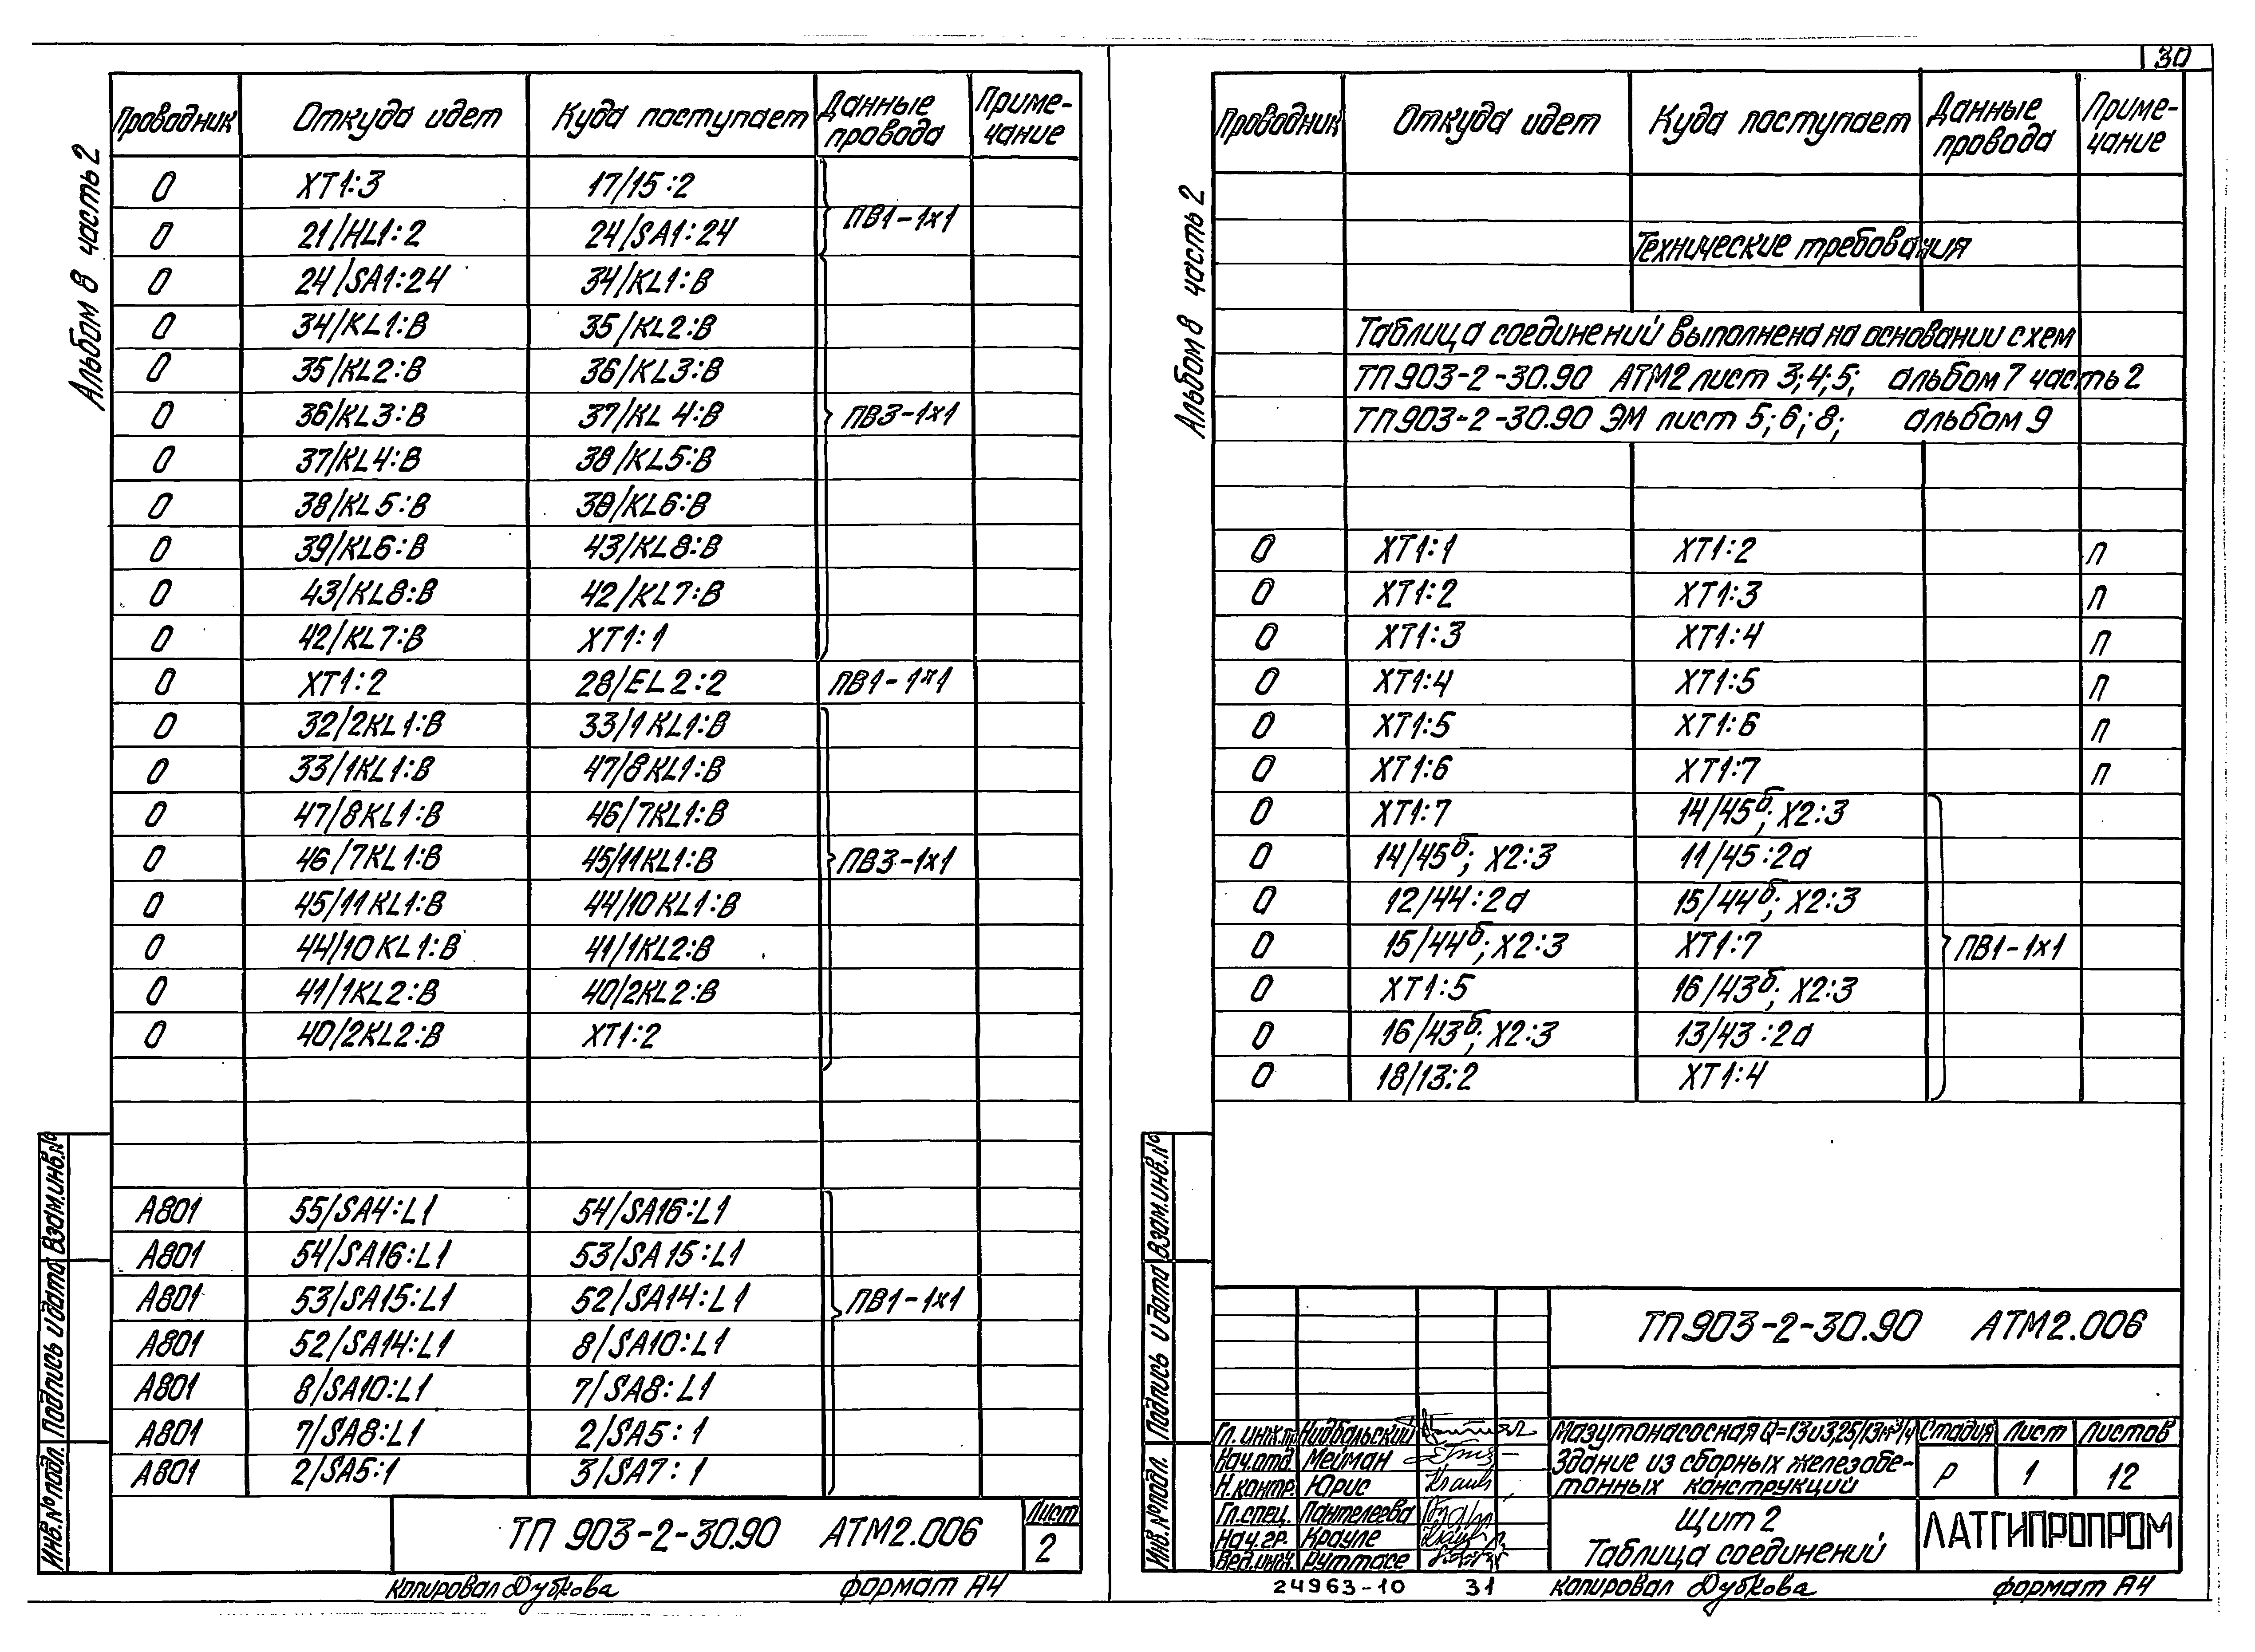 Альбом 8 часть 2
Проводник Откуда идет Куда поступает Данные провода Приме-чание
0 XT1:3 17/15:2
ПВ1-1х1
0 21/HL1:2 24/SA1:24
0 24/SA1:24 34/KL1:B
0 34/KL1:B 35/KL2:B
0 35/KL2:B 36/KL3:B
0 36/KL3:B 37/KL4:B ПВ3-1х1
0 37/KL4:B 38/KL5:B
0 38/KL5:B 39/KL6:B
0 39/KL6:B 43/KL8:B
0 43/KL8:B 42/KL7:B
0 42/KL7:B XT1:1
0 XT1:2 28/EL2:2 ПВ1-1х1
0 32/2KL1:B 33/1KL1:B
0 33/1KL1:B 47/8KL1:B
0 47/8KL1:B 46/7KL1:B
0 46/7KL1:B 45/11KL1:B ПВ3-1х1
0 45/11KL1:B 44/10KL1:B
0 44/10KL1:B 41/1KL2:B
0 41/1KL2:B 40/2KL2:B
0 40/2KL2:B XT1:2
A801 55/SA4:L1 54/SA16:L1
A801 54/SA16:L1 53/SA15:L1
A801 53/SA15:L1 52/SA14:L1 ПВ1-1х1
A801 52/SA14:L1 8/SA10:L1
A801 8/SA10:L1 7/SA8:L1
A801 7/SA8:L1 2/SA5:1
A801 2/SA5:1 3/SA7:1
Инв.№подл. Подпись и дата Взам.инв.№
ТП 903-2-30.90 АТМ2.006
Лист
2
копировал Дубкова формат А4
30
Альбом 8 часть 2
Проводник Откуда идет Куда поступает Данные провода Приме-чание
Технические требования
Таблица соединений выполнена на основании схем
ТП 903-2-30.90 АТМ2 лист 3;4;5; альбом 7 часть 2
ТП 903-2-30.90 ЭМ лист 5;6;8; альбом 9
0 XT1:1 XT1:2 п
0 XT1:2 XT1:3 п
0 XT1:3 XT1:4 п
0 XT1:4 XT1:5 п
0 XT1:5 XT1:6 п
0 XT1:6 XT1:7 п
0 XT1:7 14/45б; X2:3
0 14/45б; X2:3 11/45:2а
0 12/44:2а 15/44б; X2:3
0 15/44б; X2:3 XT1:7 ПВ1-1х1
0 XT1:5 16/43б; X2:3
0 16/43б; X2:3 13/43:2а
0 18/13:2 XT1:4
Инв.№подл. Подпись и дата Взам.инв.№
ТП 903-2-30.90 АТМ2.006
Гл. инж.пр Нидбальский
Нач.отд. Мейман
Н.контр. Юрис
Гл.спец. Пантелеева
Нач.гр. Крауле
Вед.инж. Руттасе
Мазутонасосная Q=13и3,25/13м³/ч
Здание из сборных железобе-
тонных конструкций
Стадия Лист Листов
Р 1 12
Щит 2
Таблица соединений
ЛАТГИПРОПРОМ
24963-10 31 копировал Дубкова формат А4